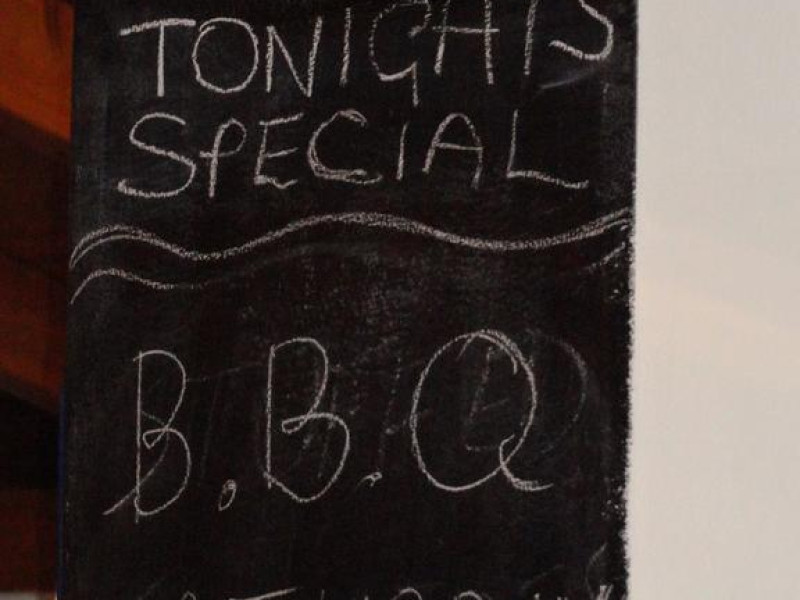 TONIGHTS
SPECIAL
B.B.Q